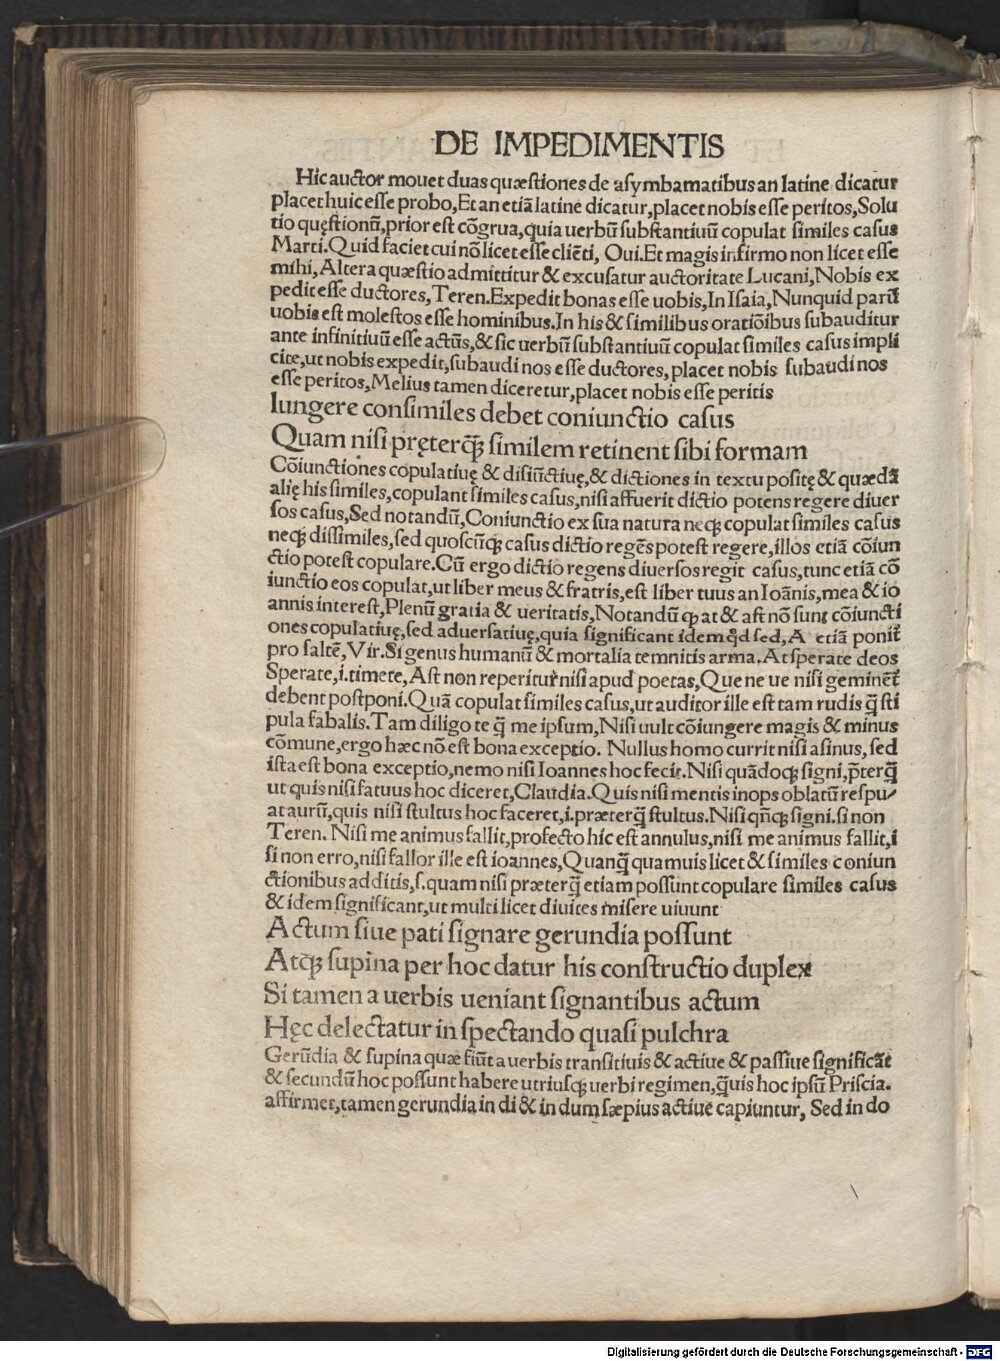 DE IMPEDIMENTIS
Hic auctor mouet duas quæstiones de asymbamatibus an latine dicatur
placet huic esse probo, Et an etiã latine dicatur, placet nobis esse peritos, Solu
tio quęstionũ, prior est cõgrua, quia uerbũ substantiuũ copulat similes casus
Marti. Quid faciet cui nõ licet esse cliẽti, Oui. Et magis infirmo non licet esse
mihi, Altera quæstio admittitur & excusatur auctoritate Lucani, Nobis ex
pedit esse ductores, Teren. Expedit bonas esse uobis, In Isaia, Nunquid parũ
uobis est molestos esse hominibus. In his & similibus oratiõibus subauditur
ante infinitiuũ esse actũs, & sic uerbũ substantiuũ copulat similes casus impli
cite, ut nobis expedit, subaudi nos esse ductores, placet nobis subaudi nos
esse peritos, Melius tamen diceretur, placet nobis esse peritis
Iungere consimiles debet coniunctio casus
Quam nisi pręterq̃ꝫ similem retinent sibi formam
Cõiunctiones copulatiuę & disiũctiuę, & dictiones in textu positę & quædã
alię his similes, copulant similes casus, nisi affuerit dictio potens regere diuer
sos casus, Sed notandũ, Coniunctio ex sua natura neqꝫ copulat similes casus
neqꝫ dissimiles, sed quoscũqꝫ casus dictio regẽs potest regere, illos etiã cõiun
ctio potest copulare. Cũ ergo dictio regens diuersos regit casus, tunc etiã cõ
iunctio eos copulat, ut liber meus & fratris, est liber tuus an Ioãnis, mea & io
annis interest, Plenũ gratia & ueritatis, Notandũ ꝙ at & ast nõ sunt cõiuncti
ones copulatiuę, sed aduersatiuę, quia significant idem qđ sed, A etiã ponit̃
pro saltẽ, Vir. Si genus humanũ & mortalia temnitis arma. At sperate deos
Sperate, i. timete, Ast non reperitur nisi apud poetas, Que ne ue nisi geminẽt
debent postponi. Quã copulat similes casus, ut auditor ille est tam rudis q̃ sti
pula fabalis. Tam diligo te q̃ me ipsum, Nisi uult cõiungere magis & minus
cõmune, ergo hæc nõ est bona exceptio. Nullus homo currit nisi asinus, sed
ista est bona exceptio, nemo nisi Ioannes hoc fecit. Nisi quãdoqꝫ signi, p̃terq̃
ut quis nisi fatuus hoc diceret, Claudia. Quis nisi mentis inops oblatũ respu⸗
at aurũ, quis nisi stultus hoc faceret, i. præterq̃ stultus. Nisi qñqꝫ signi. si non
Teren. Nisi me animus fallit, profecto hic est annulus, nisi me animus fallit, i
si non erro, nisi fallor ille est ioannes, Quanq̃ quamuis licet & similes coniun
ctionibus additis, s. quam nisi præterq̃ etiam possunt copulare similes casus
& idem significant, ut multi licet diuites misere uiuunt
Actum siue pati signare gerundia possunt
Atq̃ꝫ supina per hoc datur his constructio duplex
Si tamen a uerbis ueniant signantibus actum
Hęc delectatur in spectando quasi pulchra
Gerũdia & supina quæ fiũt a uerbis transitiuis & actiue & passiue significãt
& secundũ hoc possunt habere utriusqꝫ uerbi regimen, q̃uis hoc ipsũ Priscia.
affirmet, tamen gerundia in di & in dum sæpius actiue capiuntur, Sed in do
Digitalisierung gefördert durch die Deutsche Forschungsgemeinschaft - DFG